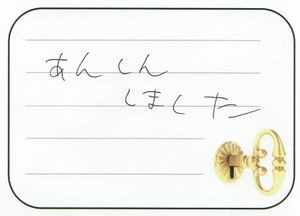 あんしん
しました